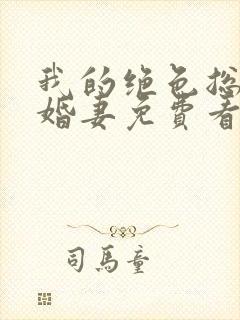 我的绝色总
婚妻免费看
司马童